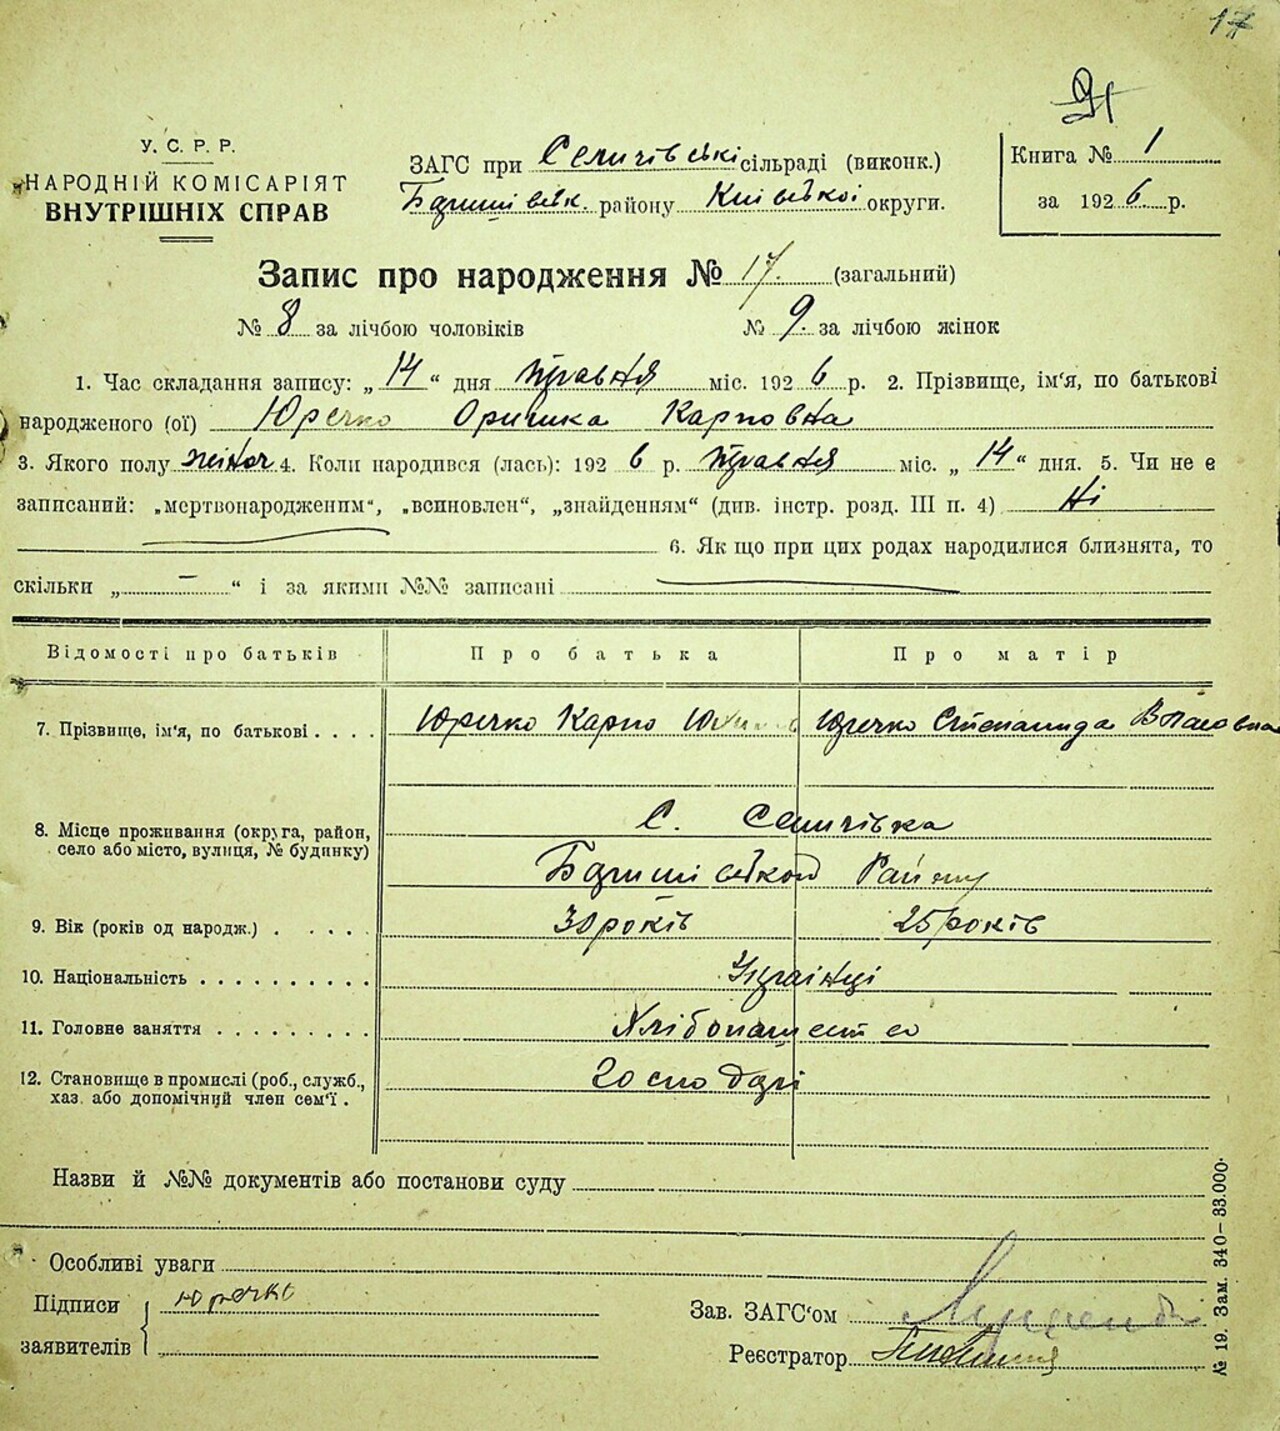 17
У. С. Р. Р.
НАРОДНІЙ КОМІСАРІЯТ
ВНУТРІШНІХ СПРАВ
ЗАГС при Селичівські сільраді (виконк.)
району Київської округи.
Книга № 1
за 1926 р.
Запис про народження № 17. (загальний)
№ 8 за лічбою чоловіків № 9. за лічбою жінок
1. Час складання запису: „14“ дня травня міс. 1926 р. 2. Прізвище, ім‘я, по батькові
народженого (ої) Юречко Оришка Карповна
3. Якого полу жіноч 4. Коли народився (лась): 1926 р. травня міс. „14“ дня. 5. Чи не є
записаний: „мертвонародженим“, „всиновлен“, „знайденням“ (див. інстр. розд. III п. 4) Ні
6. Як що при цих родах народилися близнята, то
скільки „ — “ і за якими №№ записані
Відомості про батьків Про батька Про матір
7. Прізвище, ім‘я, по батькові . . . . Юречко Карпо Юречко Степанида Власовна
8. Місце проживання (округа, район,
село або місто, вулиця, № будинку)
С. Селичівка
Району
9. Вік (років од народж.) . . . . . 30 років 25 років
10. Національність . . . . . . . . . . Українці
11. Головне заняття . . . . . . . . . Хлібопашество
12. Становище в промислі (роб., служб.,
хаз. або допомічний член сем‘ї .
Господарі
Назви й №№ документів або постанови суду
Особливі уваги
Підписи
заявителів
Юречко
Зав. ЗАГС‘ом
Реєстратор
№ 19. Зам. 340—33.000.